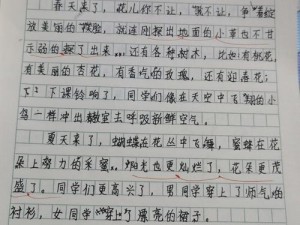 春天来了，花儿你不让，我不让，争着绽
放美丽的笑脸，就连刚探出地面的小草也不甘
示弱的探了出来。还有各种树木，比如有桃花，
有美丽的杏花，有香气的玫瑰，还有迎春花；
下课铃响了，同学们像在天空中飞翔的小
鸟一样冲出教室去呼吸新鲜空气。
夏天来了，蝴蝶在花丛中飞舞，蜜蜂在花
朵上努力的采蜜。阳光也更灿烂了，花朵更茂
盛了。同学们更高兴了，男同学穿上了帅气的
衬衫，女同学穿上了漂亮的裙子。